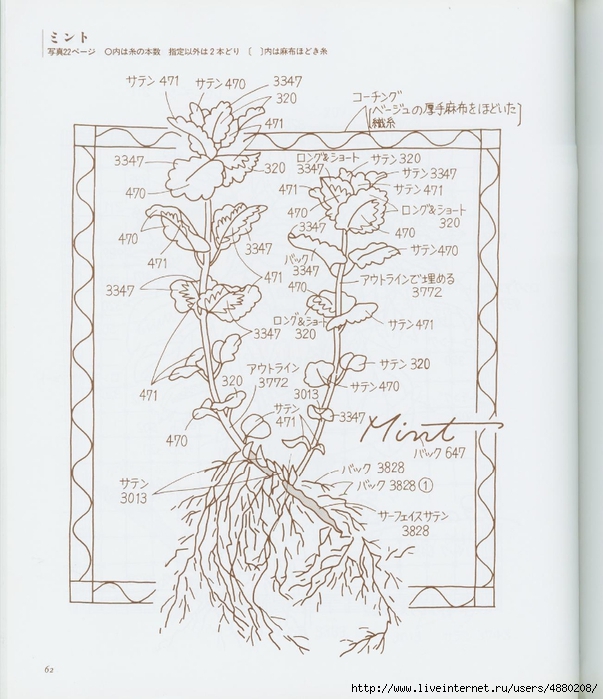 ミント
写真22ページ ○内は糸の本数 指定以外は2本どり 〔 〕内は麻布ほどき糸
サテン 471
サテン 470
3347
320
471
コーチング
〔ベージュの厚手麻布をほどいた
織糸〕
3347
470
320
ロング&ショート
サテン 320
サテン 3347
サテン 471
471
ロング&ショート
320
470
3347
470
470
3347
サテン470
バック
3347
471
471
アウトラインで埋める
3772
3347
470
3347
ロング&ショート
320
サテン471
アウトライン
3772
サテン 320
320
3013
サテン470
471
サテン
471
3347
Mint
バック 647
470
サテン
3013
バック 3828
バック 3828①
サーフェイスサテン
3828
62
http://www.liveinternet.ru/users/4880208/